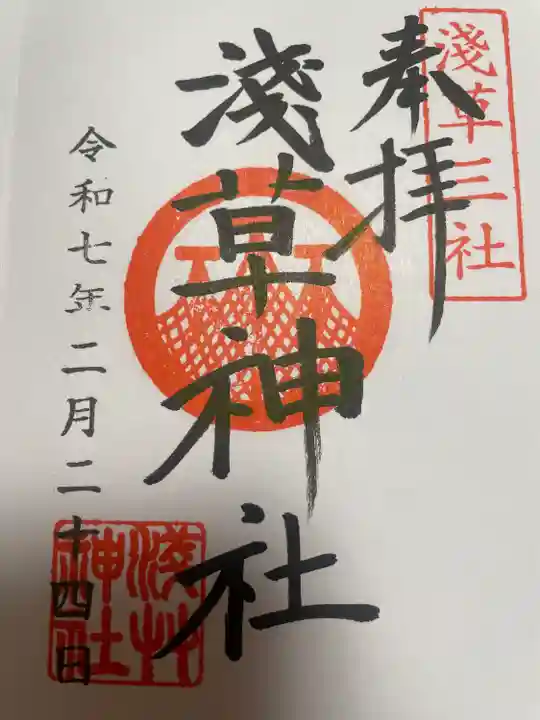 淺草三社
奉拝
淺草神社
令和七年二月二十四日
淺草
神社